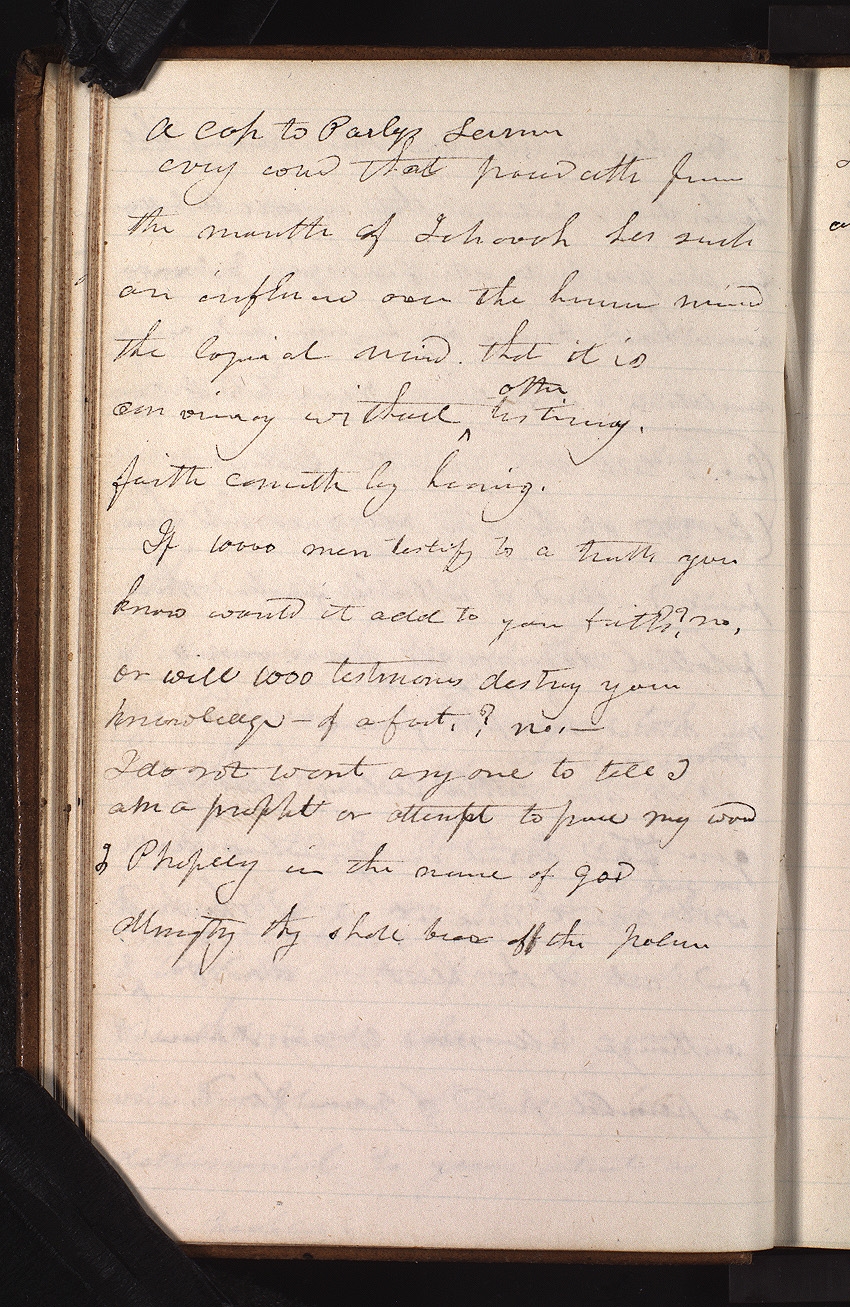 A cap to Parlys Sermon
evry word that proceedeth from
the mouth of Jehovah has such
an influence over the human mind
the logical mind. that it is
convincing without ^other testimony.
faith cometh by hearing.
If 10000 men testify to a truth you
know would it add to your faith? no,
or will 1000 testimonies destroy your
knowledge – of a fact.? no.—
I do not want any one to tell I
am a prophet or attempt to prove my word
I Phopecy in the name of god
Almighty thy shall bear off the palm